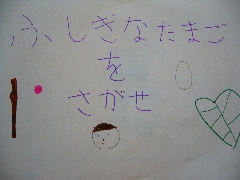 ふしぎなたまご
を
さがせ